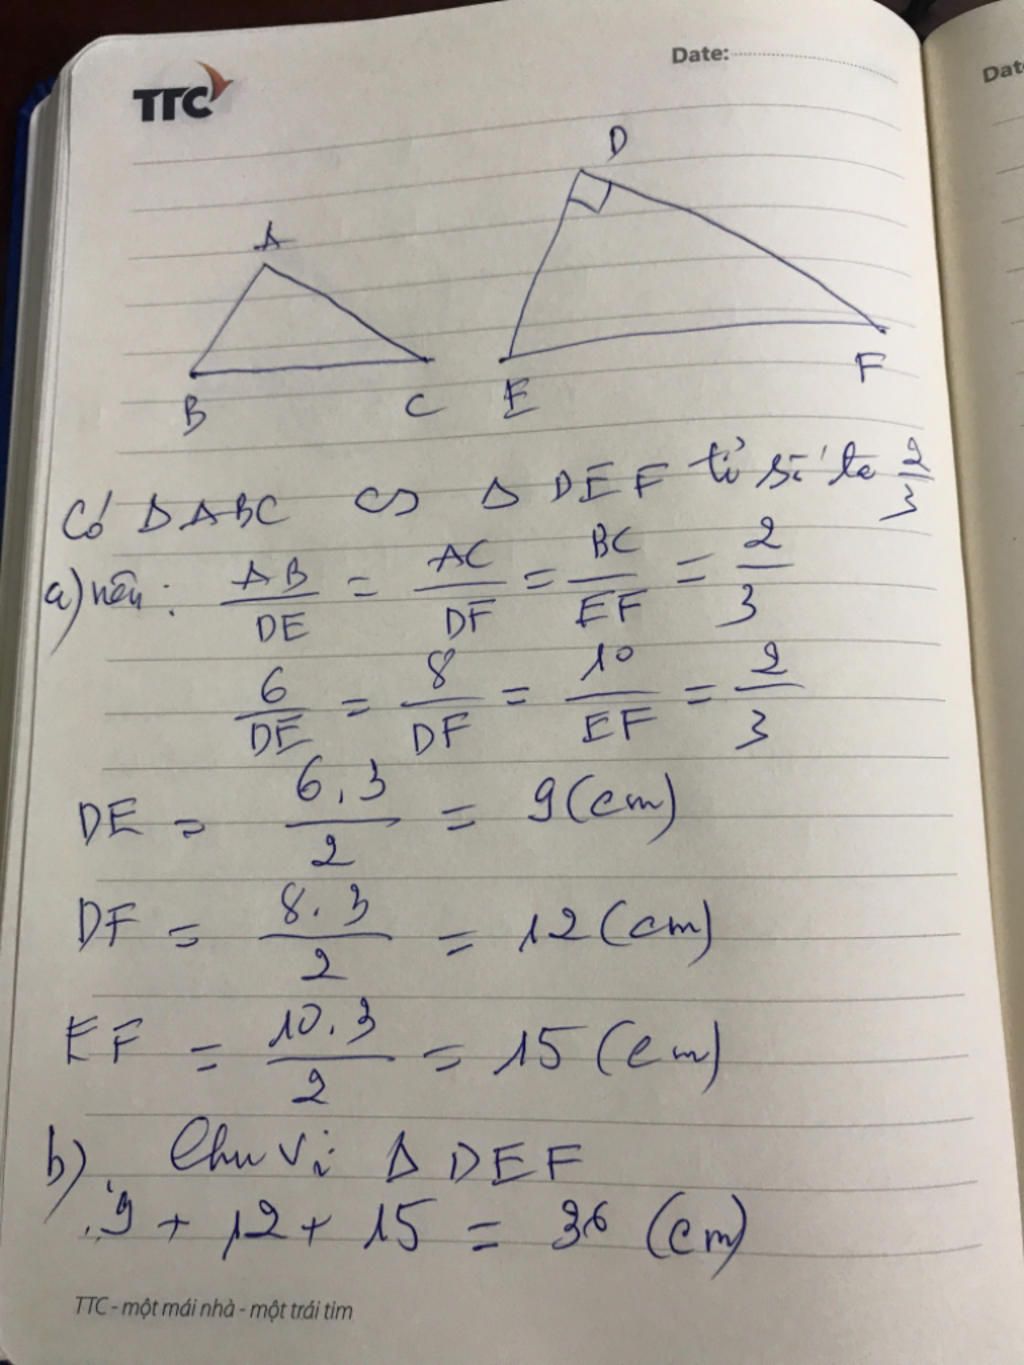 TTC
Date:
Dat
D
A
B
C
E
F
Có Δ ABC ∽ Δ DEF tỉ số là 2/3
a) nên: AB/DE = AC/DF = BC/EF = 2/3
6/DE = 8/DF = 10/EF = 2/3
DE = 6.3/2 = 9 (cm)
DF = 8.3/2 = 12 (cm)
EF = 10.3/2 = 15 (cm)
b) Chu vi Δ DEF
9 + 12 + 15 = 36 (cm)
TTC - một mái nhà - một trái tim